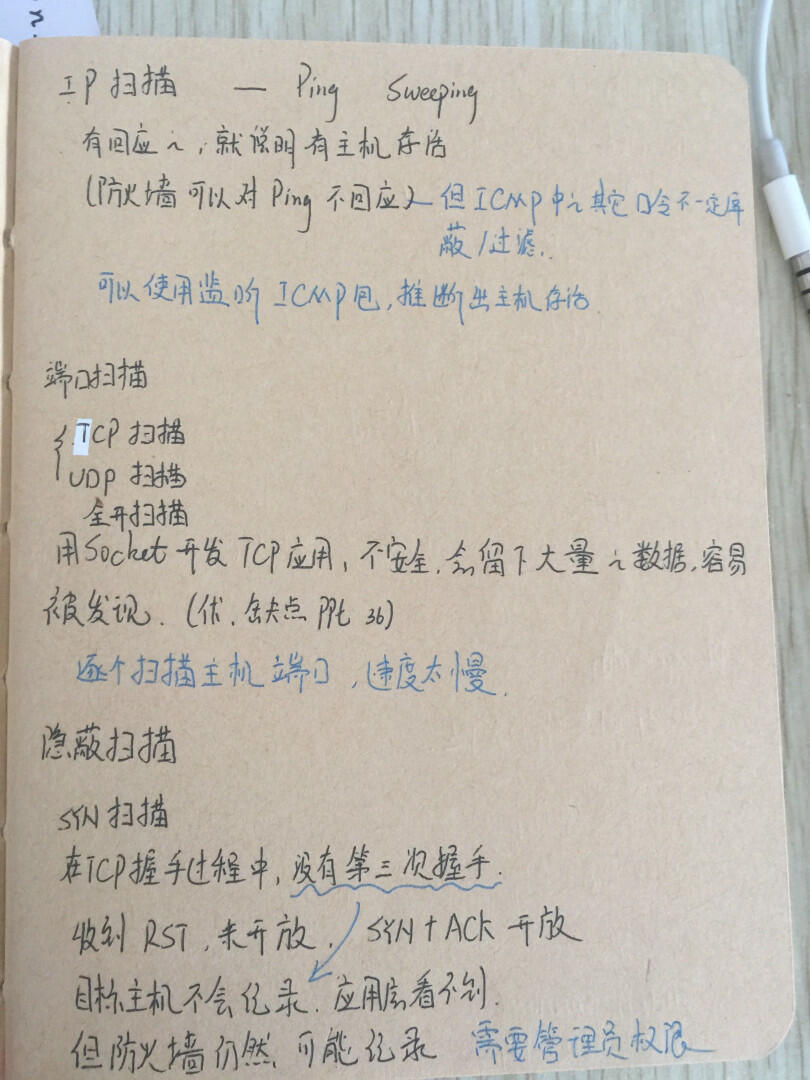 IP扫描 — Ping Sweeping
有回应之,就说明有主机存活
(防火墙可以对Ping不回应) 但ICMP中之其它命令不一定屏
蔽/过滤.
可以使用监听ICMP包,推断出主机存活.
端口扫描
TCP扫描
UDP扫描
全开扫描
用Socket开发TCP应用,不安全,会留下大量之数据,容易
被发现.(优、缺点 PPt 36)
逐个扫描主机端口,速度太慢.
隐蔽扫描
SYN扫描
在TCP握手过程中,没有第三次握手.
收到RST,未开放, SYN+ACK 开放
目标主机不会纪录.应用层看不到.
但防火墙仍然可能纪录 需要管理员权限